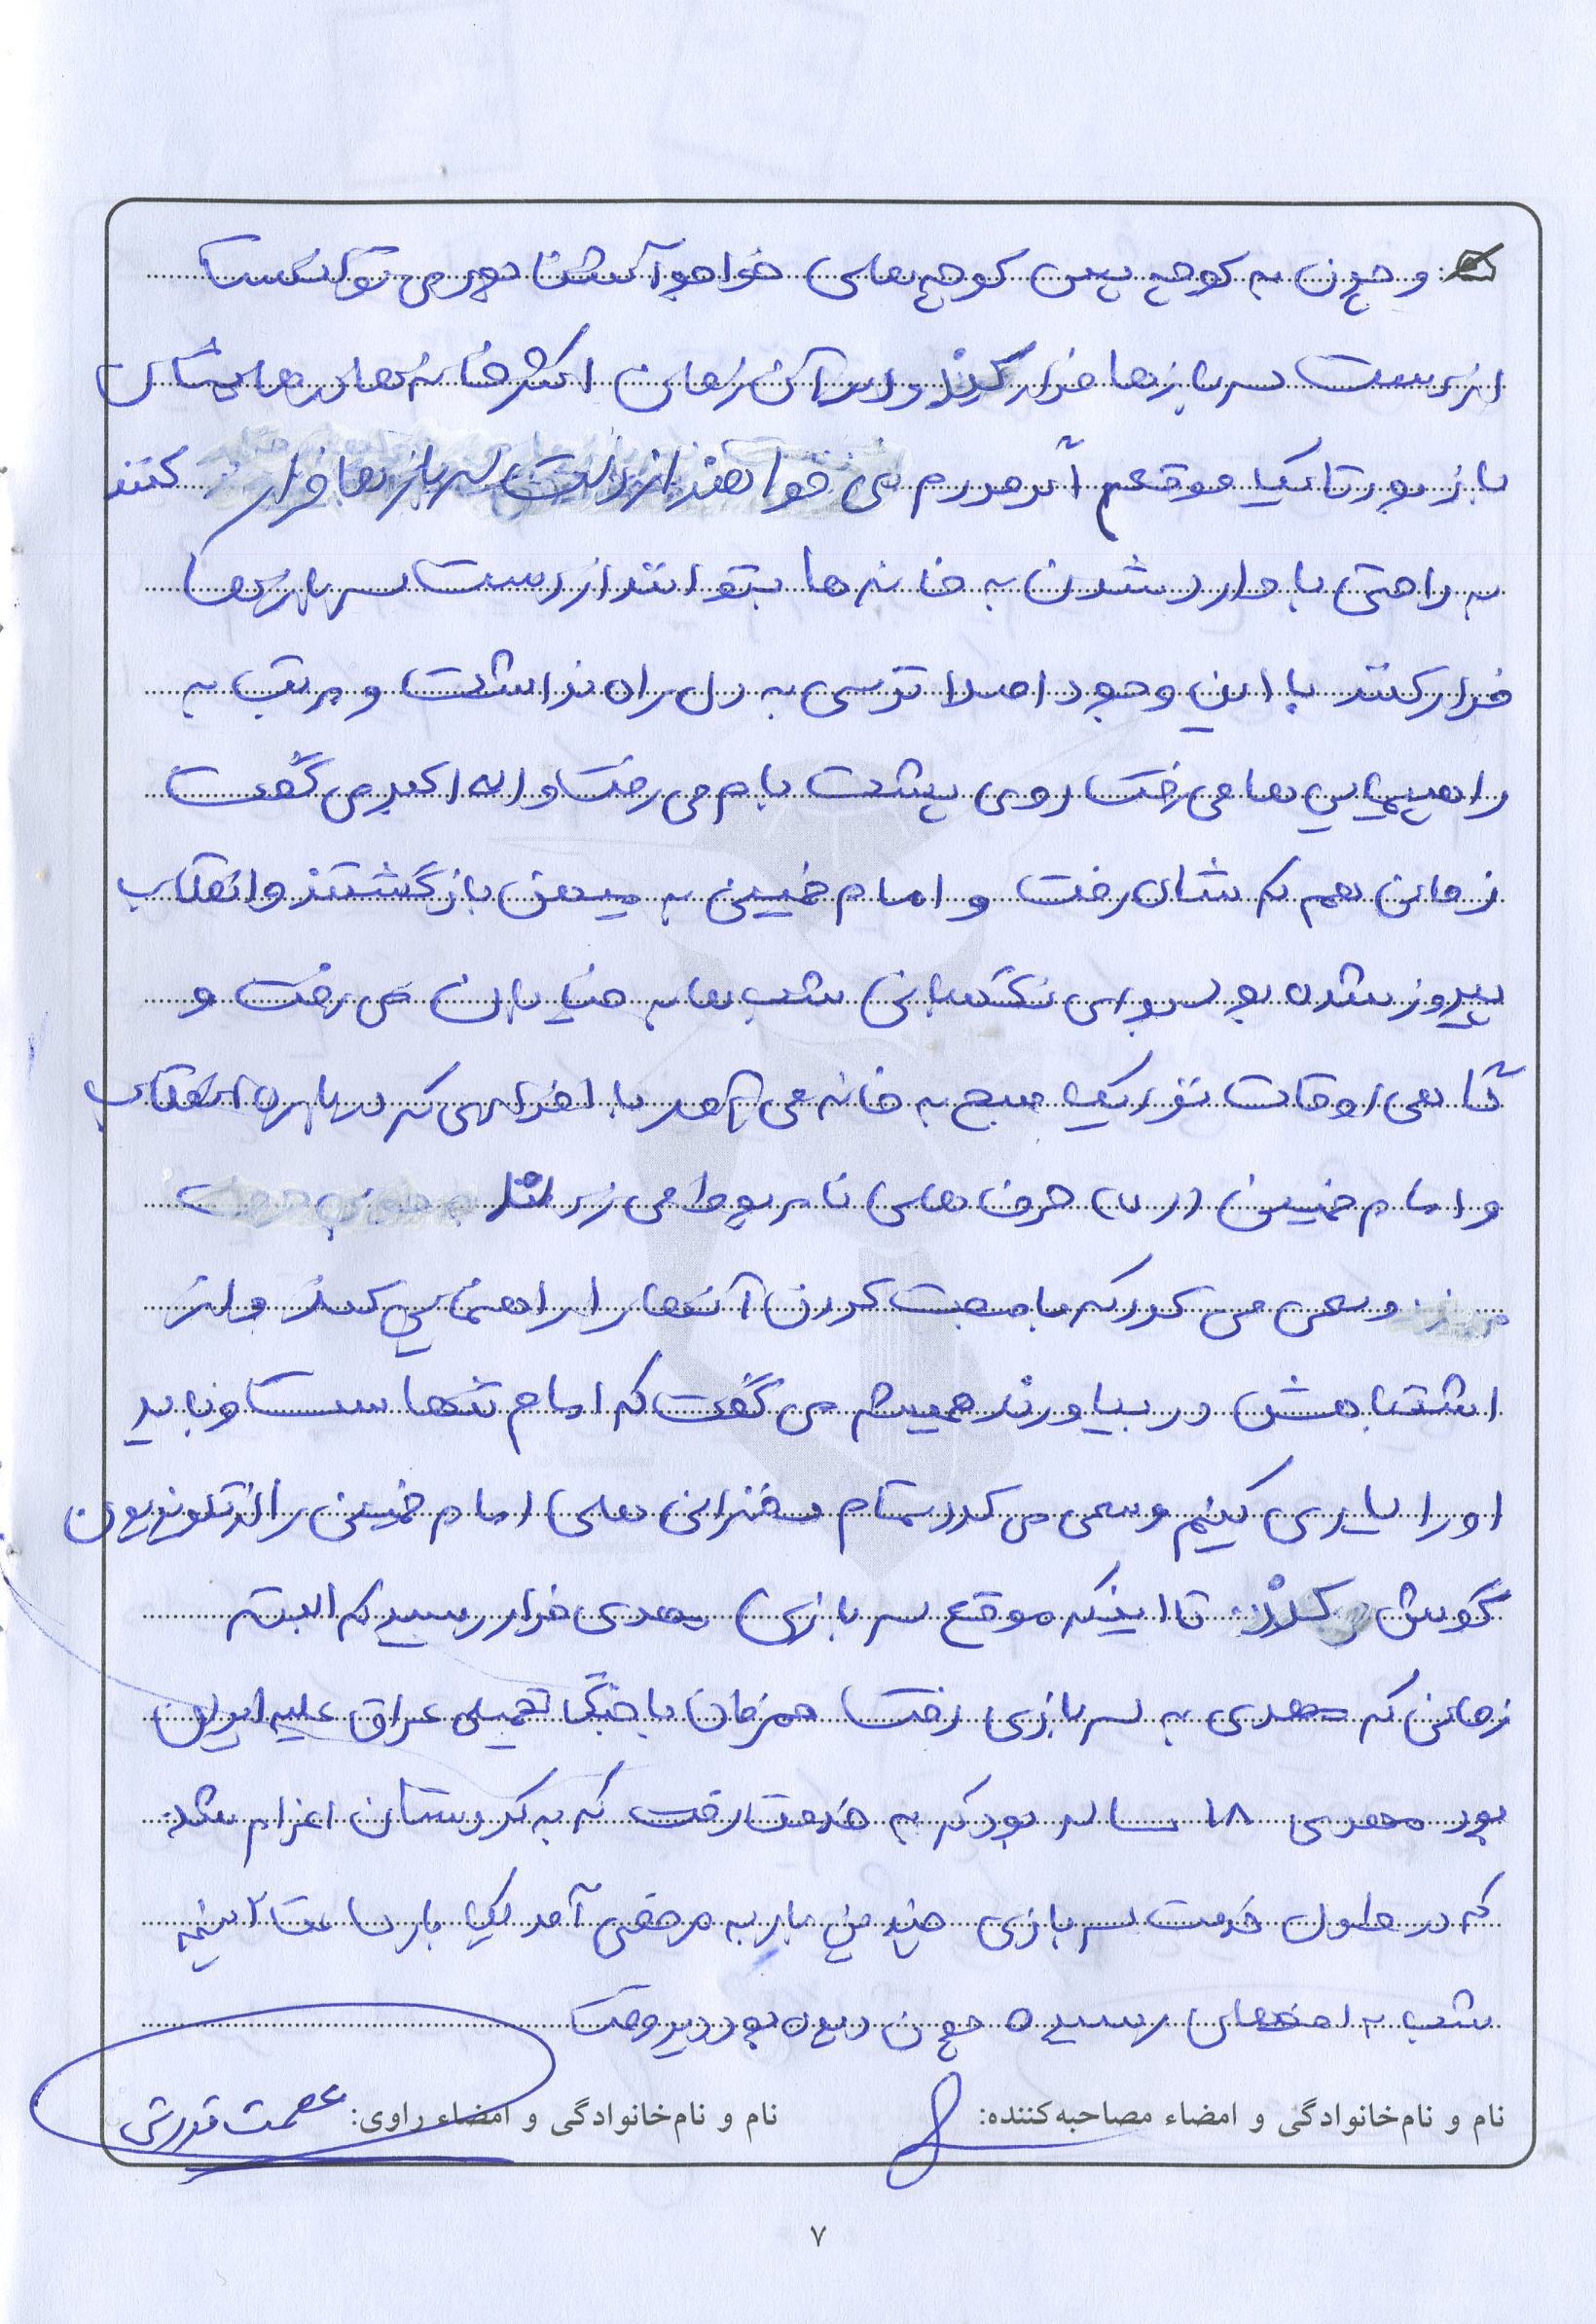 و چون به کوچه پس کوچه های خواجو آشنا بود می توانست
از دست سربازها فرار کند و در آن زمان اکثر خانه ها درهایشان
باز بود تا یک موقع اگر مردم می خواهند از دست سربازها فرار کنند
به راحتی با وارد شدن به خانه ها بتوانند از دست سربازها
فرار کنند با این وجود اصلا ترسی به دل راه نداشت و مرتب به
راهپیمایی ها می رفت روی پشت بام می رفت و اله اکبر می گفت
زمانی هم که شاه رفت و امام خمینی به میهن بازگشتند و انقلاب
پیروز شده بود برای نگهبانی شب ها به خیابان می رفت و
گاهی اوقات نزدیک صبح به خانه می آمد با افرادی که درباره انقلاب
و امام خمینی (ره) حرف های نامربوط می زدند
وسعی می کرد که با صحبت کردن آنها را راهنمایی کند و از
اشتباهش در بیاورند همیشه می گفت که امام تنهاست و باید
او را یاری کنیم و سعی می کرد تمام سخنرانی های امام خمینی را از تلویزیون
گوش کند تا اینکه موقع سربازی مهدی فرار رسید که البته
زمانی که مهدی به سربازی رفت همزمان با جنگ تحمیلی عراق علیه ایران
بود مهدی ۱۸ ساله بود که به خدمت رفت که به کردستان اعزام شد
که در طول خدمت سربازی چندین بار به مرخصی آمد یک بار ساعت ۲ نیمه
شب به اصفهان رسیده چون دیده بود دیر وقت
نام و نام‌خانوادگی و امضاء مصاحبه‌کننده: نام و نام‌خانوادگی و امضاء راوی: عصمت قدرتی
۷